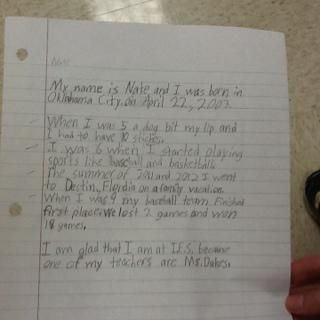 Nate
My name is Nate and I was born in
Oklahoma City on April 22, 2003.
When I was 5 a dog bit my lip and
I had to have 10 stiches.
I was 6 when I started playing
sports like baseball and basketball.
The summer of 2011 and 2012 I went
to Destin, Flordia on a family vacation.
When I was 9 my baseball team finished
first place. We lost 2 games and won
18 games.
I am glad that I am at I.E.S. because
one of my teachers are Ms. Dukes.